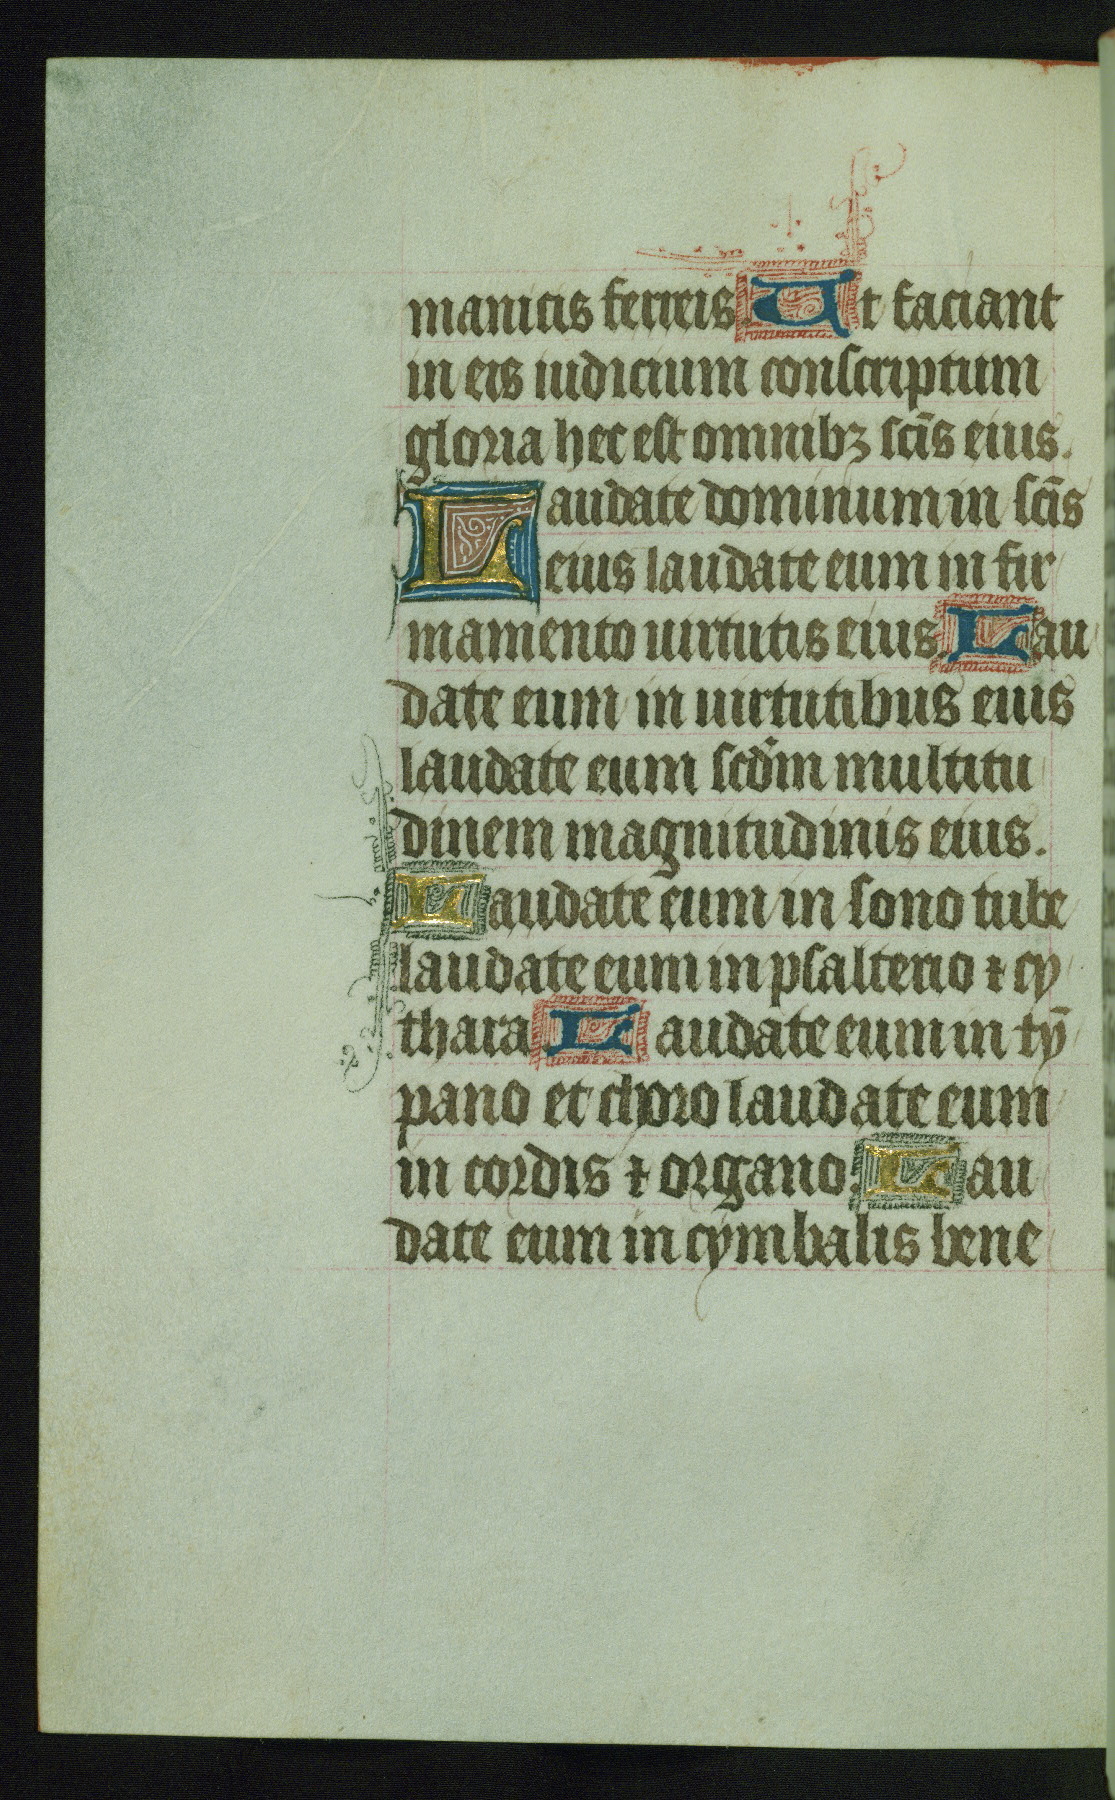 manicis ferreis. Ut faciant
in eis iudicium conscriptum
gloria hec est omnibꝫ scīs eius.
Laudate dominum in scīs
eius laudate eum in fir
mamento uirtutis eius. Lau
date eum in uirtutibus eius
laudate eum scd̄m multitu
dinem magnitudinis eius.
Laudate eum in sono tube
laudate eum in psalterio ⁊ cy
thara Laudate eum in tȳ
pano et choro laudate eum
in cordis ⁊ organo. Lau
date eum in cymbalis bene